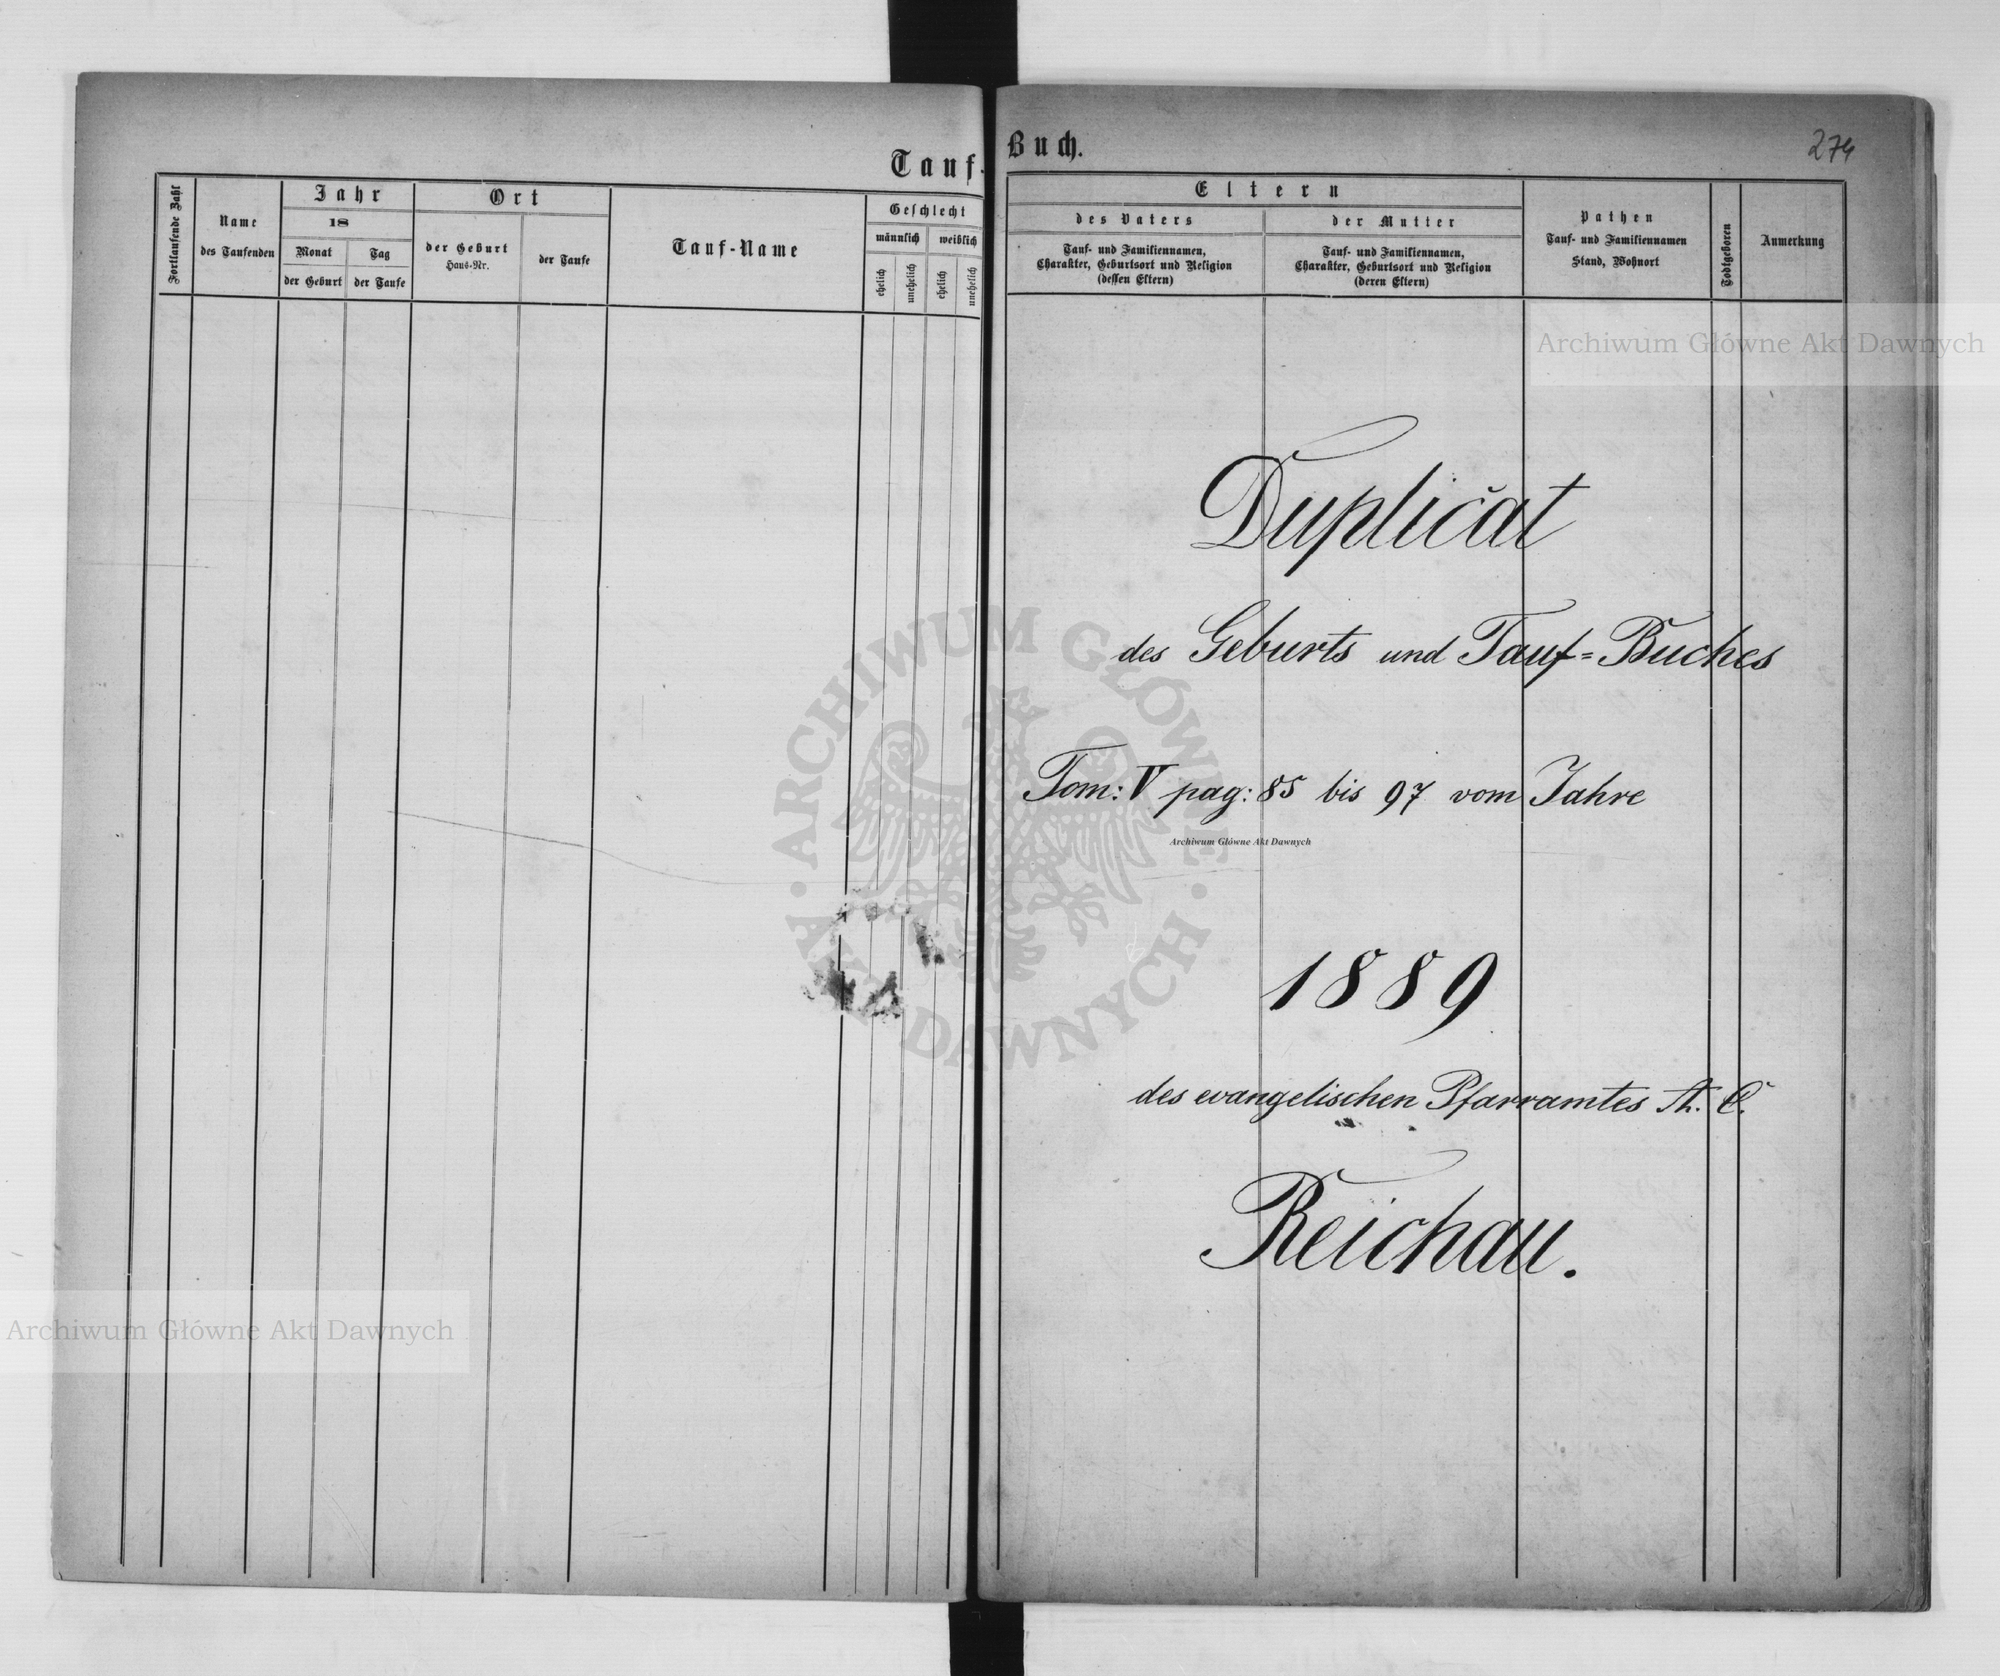 Tauf-Buch.
274
Fortlaufende Zahl
Name
des Taufenden
Jahr
18
Monat
der Geburt
Tag
der Taufe
Ort
der Geburt
Haus-Nr.
der Taufe
Tauf-Name
Geschlecht
männlich
weiblich
ehelich
unehelich
ehelich
unehelich
Eltern
des Vaters
Tauf- und Familiennamen,
Charakter, Geburtsort und Religion
(dessen Eltern)
der Mutter
Tauf- und Familiennamen,
Charakter, Geburtsort und Religion
(deren Eltern)
Pathen
Tauf- und Familiennamen
Stand, Wohnort
Todtgeboren
Anmerkung
Archiwum Główne Akt Dawnych
Duplicat
des Geburts und Tauf=Buches
Tom: V pag: 85 bis 97 vom Jahre
Archiwum Główne Akt Dawnych
1889
des evangelischen Pfarramtes A. C.
Reichau.
ARCHIWUM GŁÓWNE · AKT DAWNYCH ·
Archiwum Główne Akt Dawnych